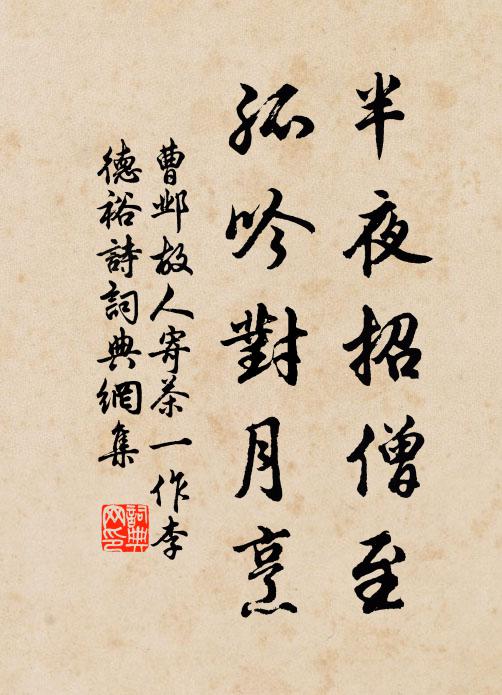 半夜招僧至
孤吟對月烹
曹邺故人寄茶一作李
德裕詩詞典網集
詞典
网印